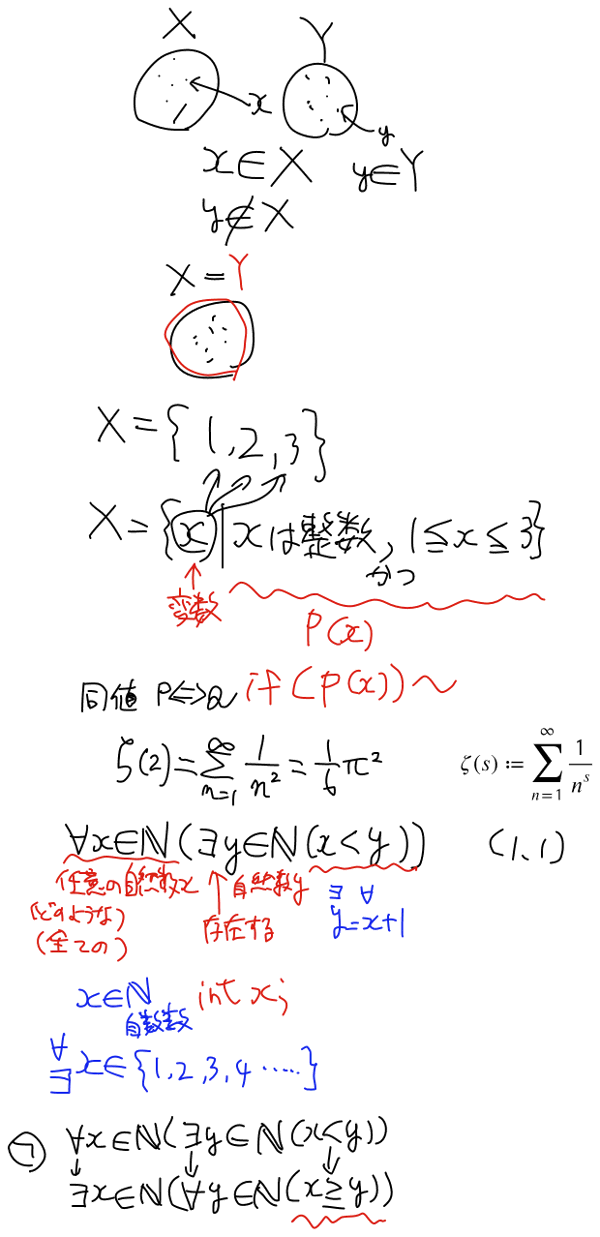 X Y
x
y
x∈X y∈Y
y∉X
X=Y
X={1,2,3}
X={x|xは整数,1≦x≦3}
かつ
変数
P(x)
同値 P⇔Q if(P(x))〜
ζ(2)=∑_{n=1}^{∞} 1/n²=1/6π² ζ(s):=∑_{n=1}^{∞} 1/n^s
∀x∈ℕ(∃y∈ℕ(x<y)) (1,1)
任意の自然数x ↑自然数y ∃ ∀
(どのような) 存在する y=x+1
(全ての)
x∈ℕ int x;
自数数
∀
∃x∈{1,2,3,4.....}
¬ ∀x∈ℕ(∃y∈ℕ(x<y))
↓ ↓ ↓
∃x∈ℕ(∀y∈ℕ(x≧y))